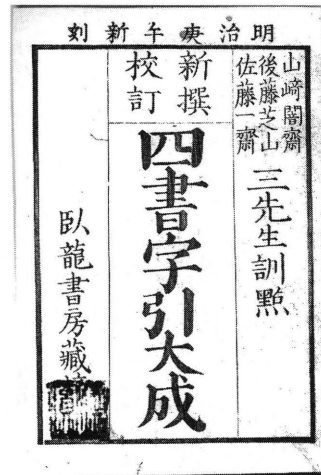 明治庚午新刻
山崎闇齋
後藤芝山
佐藤一齋
三先生訓點
新撰
校訂
四書字引大成
臥龍書房藏